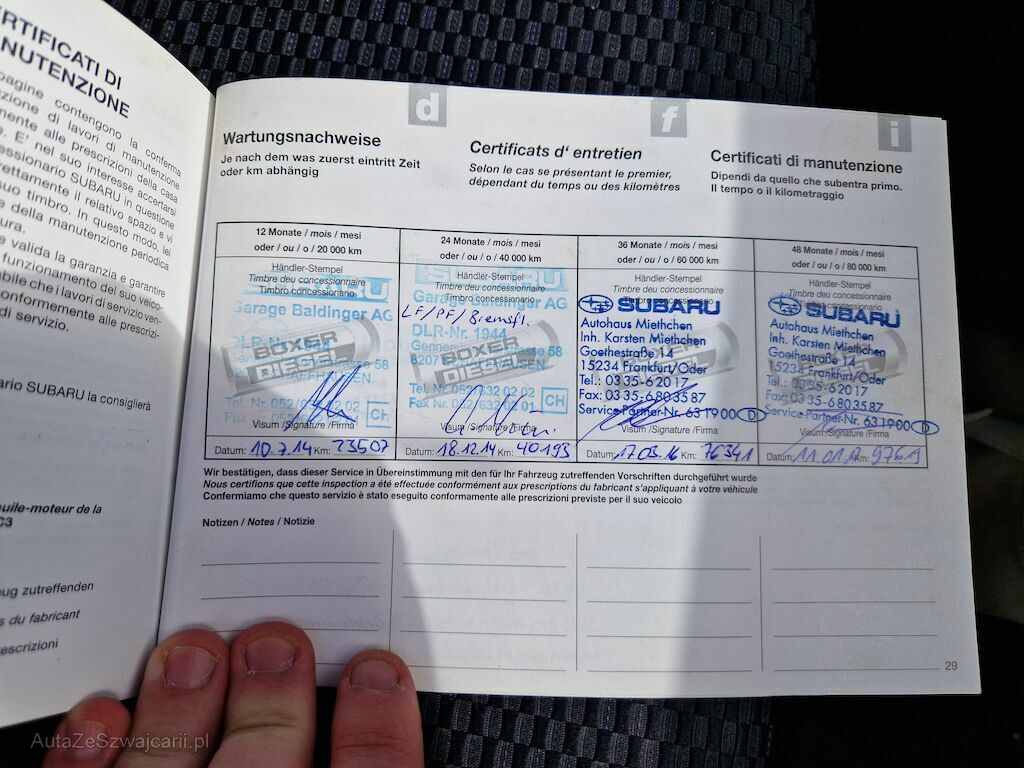 CERTIFICATI DI
MANUTENZIONE
pagine contengono la conferma
zione di lavori di manutenzione
mente alle prescrizioni della casa
e. E' nel suo interesse accertarsi
cessionario SUBARU in questione
rrettamente il relativo spazio e vi
suo timbro. In questo modo, lei
e della manutenzione periodica
ura.
e valida la garanzia e garantire
funzionamento del suo veico-
abile che i lavori di servizio ven-
conformemente alle prescrizi-
di servizio.
ario SUBARU la consiglierà
huile-moteur de la
C3
ug zutreffenden
s du fabricant
escrizioni
d
f
i
Wartungsnachweise
Je nach dem was zuerst eintritt Zeit
oder km abhängig
Certificats d' entretien
Selon le cas se présentant le premier,
dépendant du temps ou des kilomètres
Certificati di manutenzione
Dipendi da quello che subentra primo.
Il tempo o il kilometraggio
12 Monate / mois / mesi
oder / ou / o / 20 000 km
Händler-Stempel
Timbre deu concessionnaire
Timbro concessionario
SUBARU
Garage Baldinger AG
DLR-Nr. 1944
58
BOXER
DIESEL
SCHAFFHAUSEN
Tel. Nr. 052/632 02 02
Fax Nr. 052/632
CH
Visum /Signature /Firma
Datum: 10.7.14 Km: 23507
24 Monate / mois / mesi
oder / ou / o / 40 000 km
Händler-Stempel
Timbre deu concessionnaire
Timbro concessionario
SUBARU
Garage Baldinger AG
LF/PF/Bremsfl.
DLR-Nr. 1944
58
8207
BOXER
DIESEL
Tel. Nr. 052/632 02 02
Fax Nr. 052/632 02 01
CH
Visum /Signature /Firma
Datum: 18.12.14 Km: 40193
36 Monate / mois / mesi
oder / ou / o / 60 000 km
Händler-Stempel
Timbre deu concessionnaire
Timbro concessionario
SUBARU
Autohaus Miethchen
Inh. Karsten Miethchen
Goethestraße 14
15234 Frankfurt/Oder
Tel.: 03 35-6 20 17
Fax: 03 35-6 80 35 87
Service-Partner-Nr. 63 1900 D
Visum /Signature /Firma
Datum: 17.03.16 Km: 76341
48 Monate / mois / mesi
oder / ou / o / 80 000 km
Händler-Stempel
Timbre deu concessionnaire
Timbro concessionario
SUBARU
Autohaus Miethchen
Inh. Karsten Miethchen
Goethestraße 14
15234 Frankfurt/Oder
Tel.: 03 35-6 20 17
Fax: 03 35-6 80 35 87
Service-Partner-Nr. 63 1900 D
Visum /Signature /Firma
Datum: 11.01.17 Km: 97619
Wir bestätigen, dass dieser Service in Übereinstimmung mit den für Ihr Fahrzeug zutreffenden Vorschriften durchgeführt wurde
Nous certifions que cette inspection a été effectuée conformément aux prescriptions du fabricant s'appliquant à votre véhicule
Confermiamo che questo servizio è stato eseguito conformamente alle prescrizioni previste per il suo veicolo
Notizen / Notes / Notizie
29
AutaZeSzwajcarii.pl